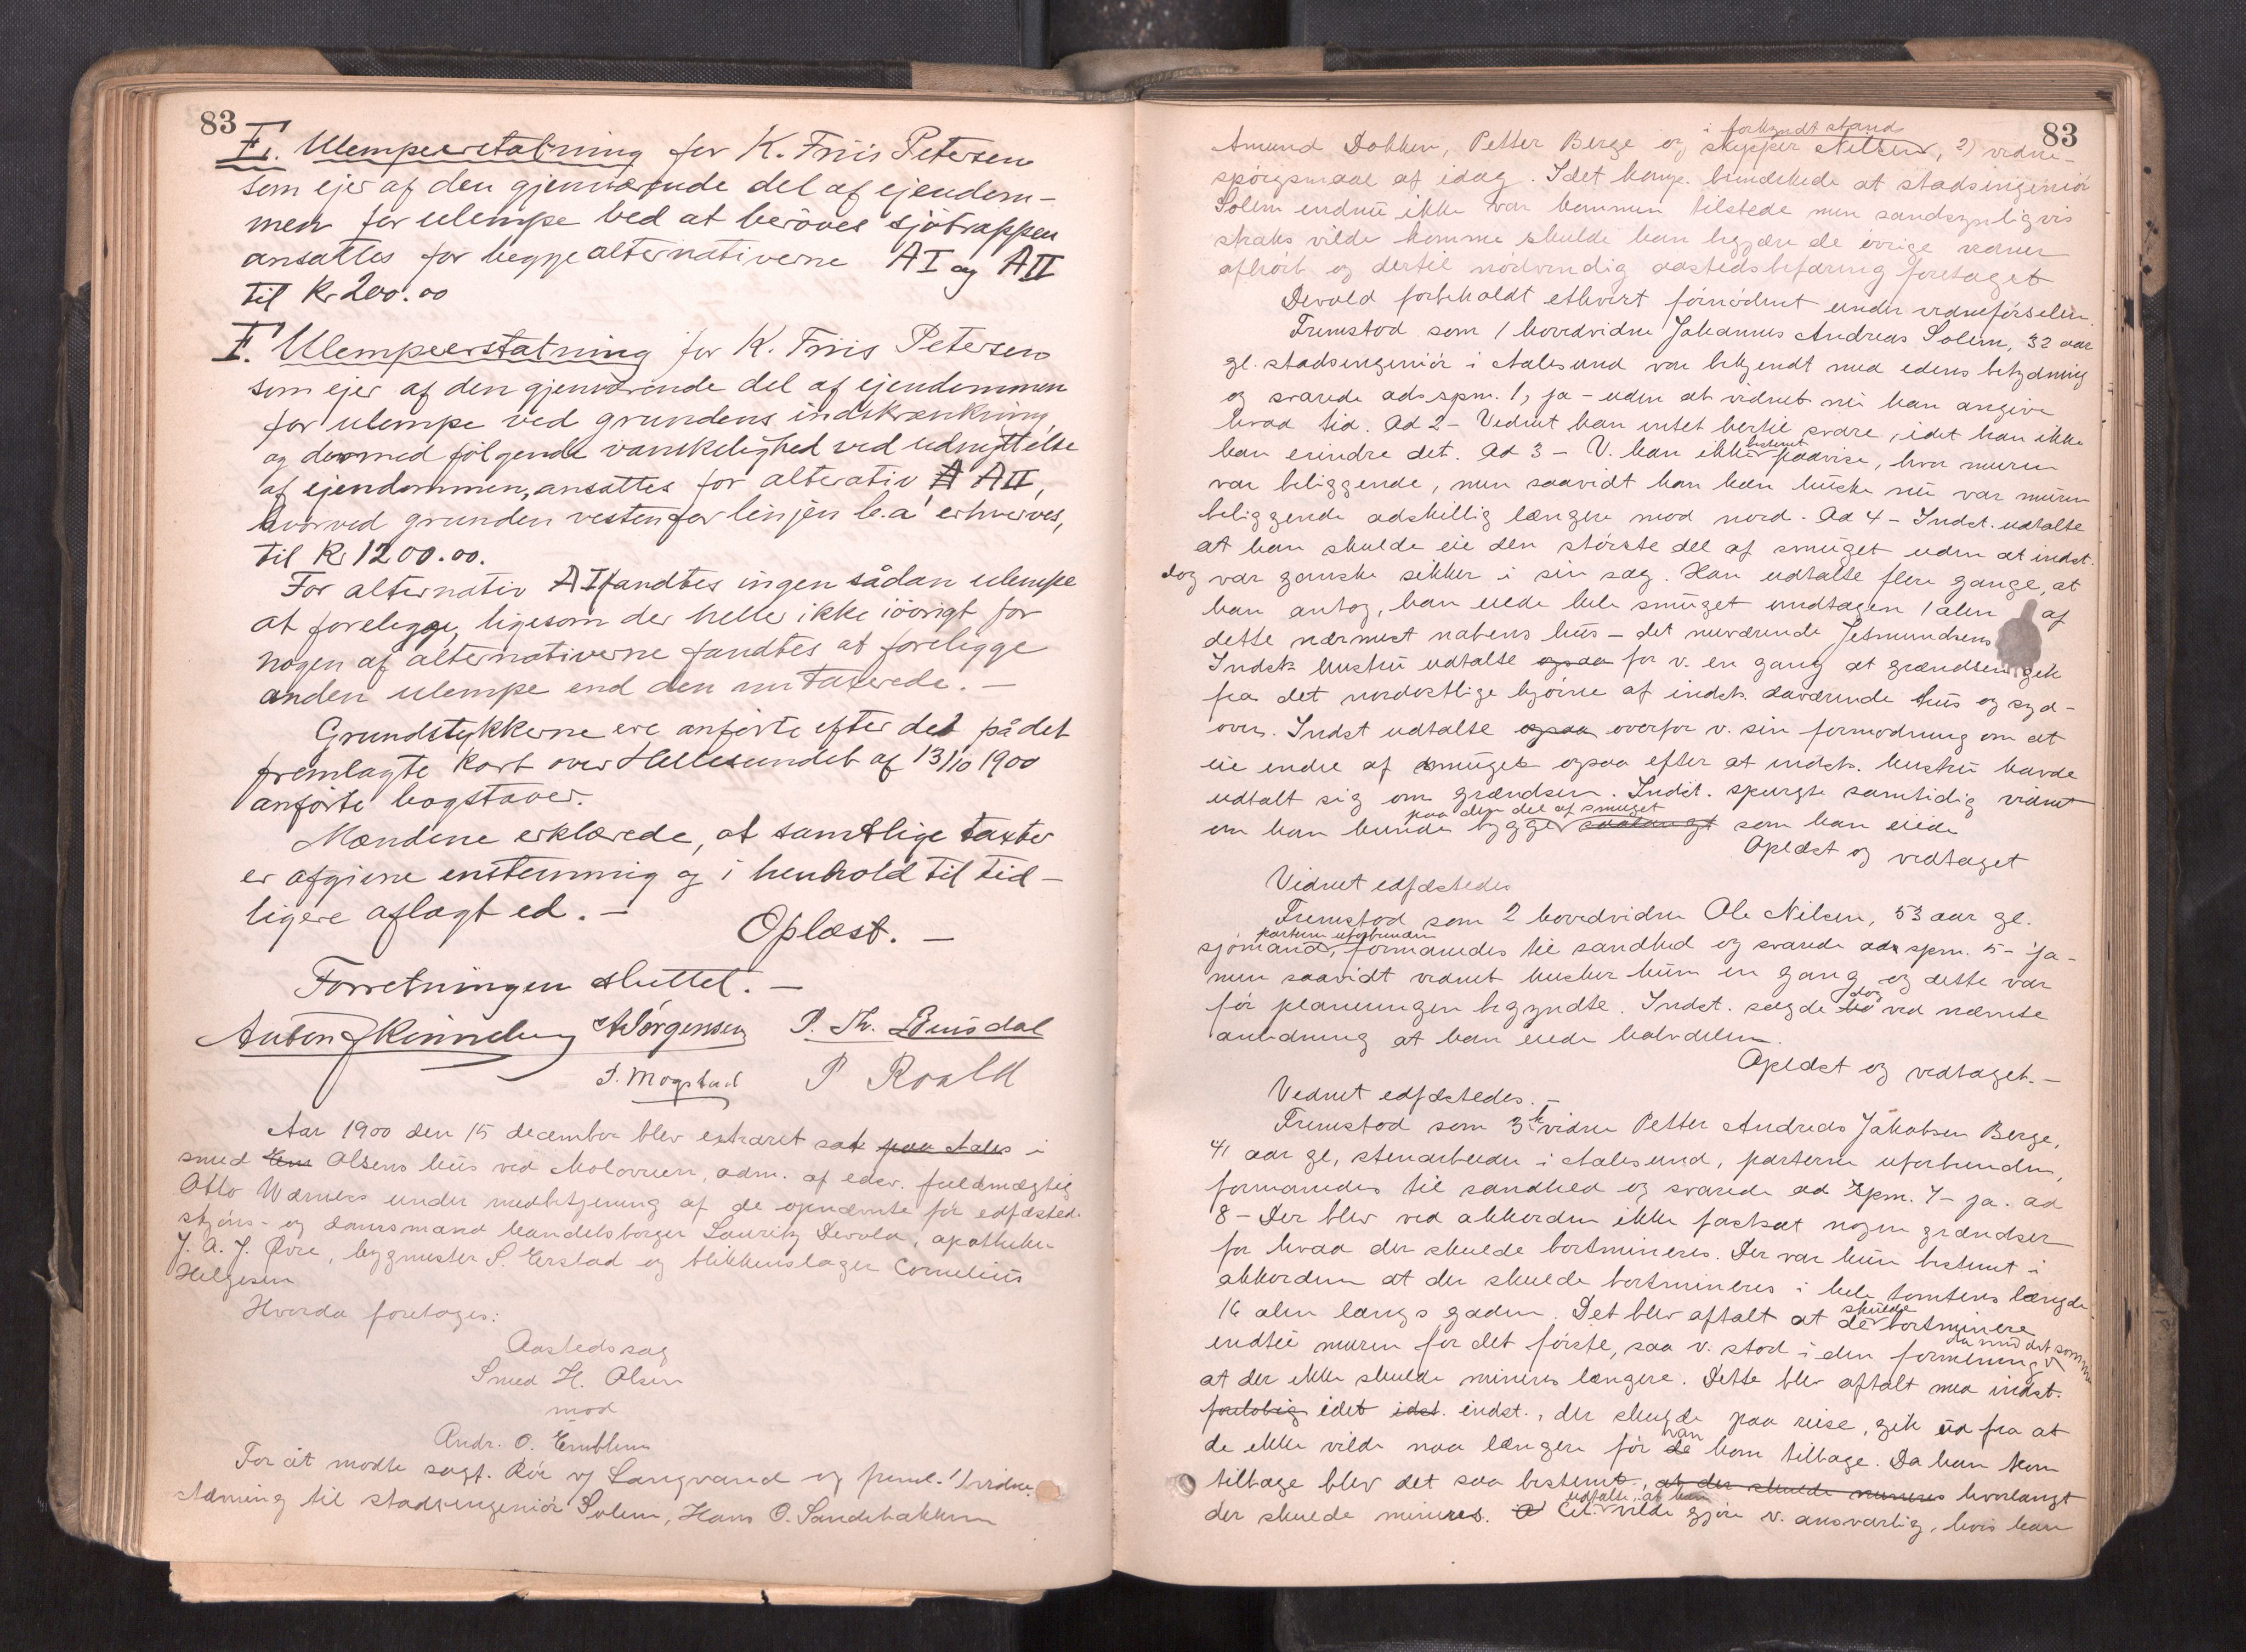 83
E. Ulempeerstatning for K. Friis Petersen
som ejer af den gjenværende del af ejendom-
men for ulempe ved at beröves sjötrappen
ansattes for begge alternativerne A I og A II
til Kr 200.00
F. Ulempeerstatning for K. Friis Petersen
som ejer af den gjenværende del af ejendommen
for ulempe ved grundens indskrænkning
og dermed fölgende vanskelighed ved udnyttelse
af ejendommen, ansattes for alterativ A A II,
hvorved grunden vestenfor linjen b.a' erhverves,
til Kr 1200.00.
For alternativ A I fandtes ingen sådan ulempe
at forelegge, ligesom der heller ikke iövrigt for
nogen af alternativerne fandtes at foreligge
anden ulempe end den nu taxerede. —
Grundstykkerne ere anförte efter det på det
fremlagte Kort over Hellesundet af 13/10 1900
anförte bogstaver.
Mændene erklærede, at samtlige taxter
er afgivne enstemmig og i henhold til tid-
ligere aflagt ed. —
Oplæst. —
Forretningen sluttet. —
Anton Rönneberg A Jörgensen P. Th. Eeinsdal
J. Mogstad P Roald
Aar 1900 den 15 december blev extraret sat paa Aales i
smed Olsens hus ved Molovæien, adm. af edsv. fuldmægtig
Otto Warness under medbetjening af de opnævnte för edfæsted
skjöns- og domsmænd handelsborger Lauritz Devold, apotheker
J. A. J. Øvre, bygmester S. Erstad og blikkenslager Cornelius
Helgesen
Hvorda foretoges:
Aastedssag
Smed H. Olsen
mod
Andr. O. Emblem
For cit mødte sagf. Röe v/ Langvand og freml. 1) vidne-
stævning til stadsingeniör Solem, Hans O. Sandebakken
83
i forkyndt stand
Amund Dokken, Petter Berge og skipper Nilsen, 2) vidne-
spörgsmaal af idag. Idet komp. bemerkede at stadsingeniör
Solem endnu ikke var kommen tilstede men sandsynligvis
straks vilde komme skulde han begjære de övrige vidner
afhört og dertil nödvendig aastedsbefaring foretaget
Devold forbeholdt ethvert fornödent under vidneförselen.
Fremstod som 1 hovedvidne Johannes Andreas Solem, 32 aar
gl. stadsingeniör i Aalesund var bekjendt med edens betydning
og svarede ad spm. 1, ja – uden at vidnet nu kan angive
hvad tid. Ad 2 – Vidnet kan intet hertil svare, idet han ikke
kan erindre det. Ad 3 – V. kan ikke bestemt paavise, hvor muren
var beliggende, men saavidt han kan huske nu var muren
beliggende adskillig længere mod nord. Ad 4 – Indst. udtalte
at han skulde eie den störste del af smuget uden at indst.
dog var ganske sikker i sin sag. Han udtalte flere gange, at
han antog, han eiede hele smuget undtagen 1 alen af
dette nærmest nabens hus – det nuværende Jetmundsens
Indst. hustru udtalte ogsaa for v. en gang at grændsen gik
fra det nordostlige hjörne af indst. daværende hus og syd-
over. Indst udtalte ogsaa overfor v. sin formodning om at
eie endel af smuget ogsaa efter at indst. hustru havde
udtalt sig om grændsen. Indst. spurgte samtidig vidnet
paa den del af smuget
om han kunde bygge saalangt som han eiede
Oplæst og vedtaget
Vidnet edfæstedes
Fremstod som 2 hovedvidne Ole Nilsen, 53 aar gl.
parterne uforbunden
sjömand, formanedes til sandhed og svarede ad spm. 5 – ja –
men saavidt vidnet husker kun en gang og dette var
för planeringen begyndte. Indst. sagde dog ved nævnte
anledning at han eiede halvdelen.
Oplæst og vedtaget. —
Vidnet edfæstedes. —
Fremstod som 3 vidne Petter Andreas Jakobsen Berge,
41 aar gl, stenarbeider i Aalesund, parterne uforbunden,
formanedes til sandhed og svarede ad spm. 7 – ja. ad
8 – Der blev ved akkorden ikke fastsat nogen grændser
for hvad der skulde bortmineres. Der var kun bestemt i
akkorden at der skulde bortmineres i hele tomtens længde
16 alen langs gaden. Det blev aftalt at de skulde bortminere
indtil muren for det förste, saa v. stod i den formening
at der ikke skulde mineres længere. Dette blev aftalt med indst.
foreløbig idet idst. indst., der skulde paa reise, gik ud fra at
de ikke vilde naa længere för de han kom tilbage. Da han kom
tilbage blev det saa bestemt, at der skulde mineres hvorlangt
udtalte, at han
der skulde mineres. Cit. vilde gjöre v. ansvarlig, hvis han